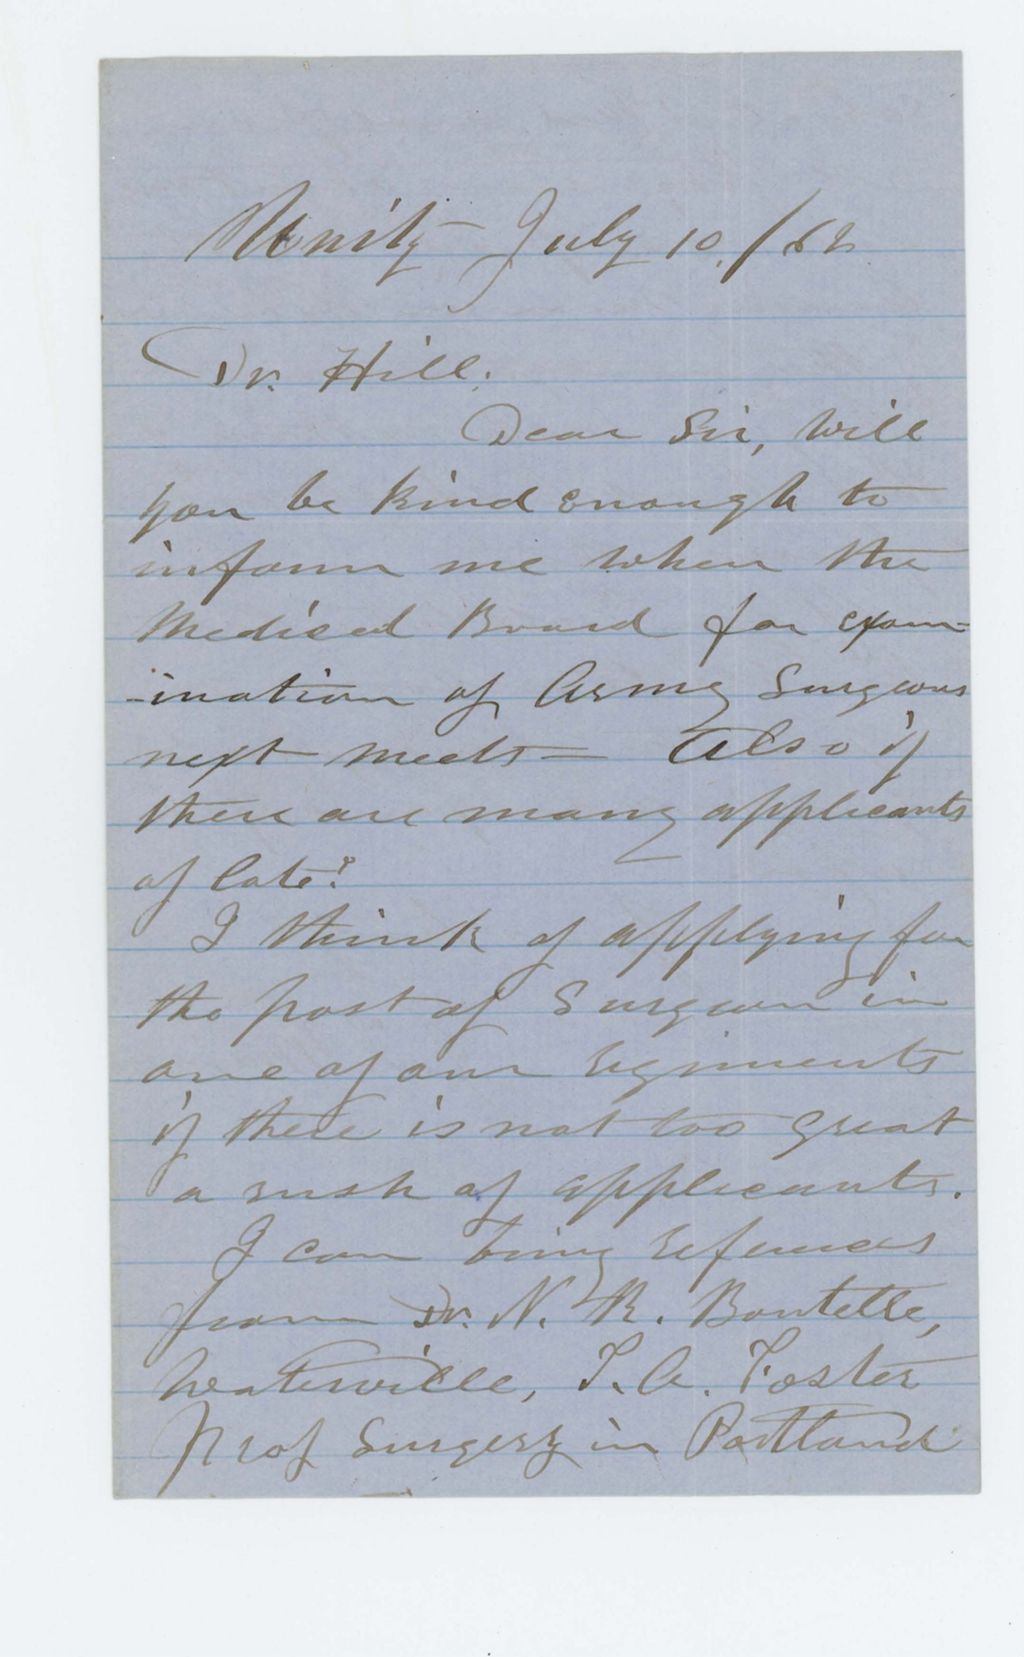 Unity July 10, /62
Dr. Hill.
Dear Sir, Will
you be kind enough to
inform me when the
Medical Board for exam-
-ination of Army Surgeons
next meets— Also if
there are many applicants
of late?
I think of applying for
the post of Surgeon in
one of our regiments
if there is not too great
a rush of applicants.
I can bring references
from Dr. N. R. Boutelle,
Waterville, T. A. Foster
Prof Surgery in Portland